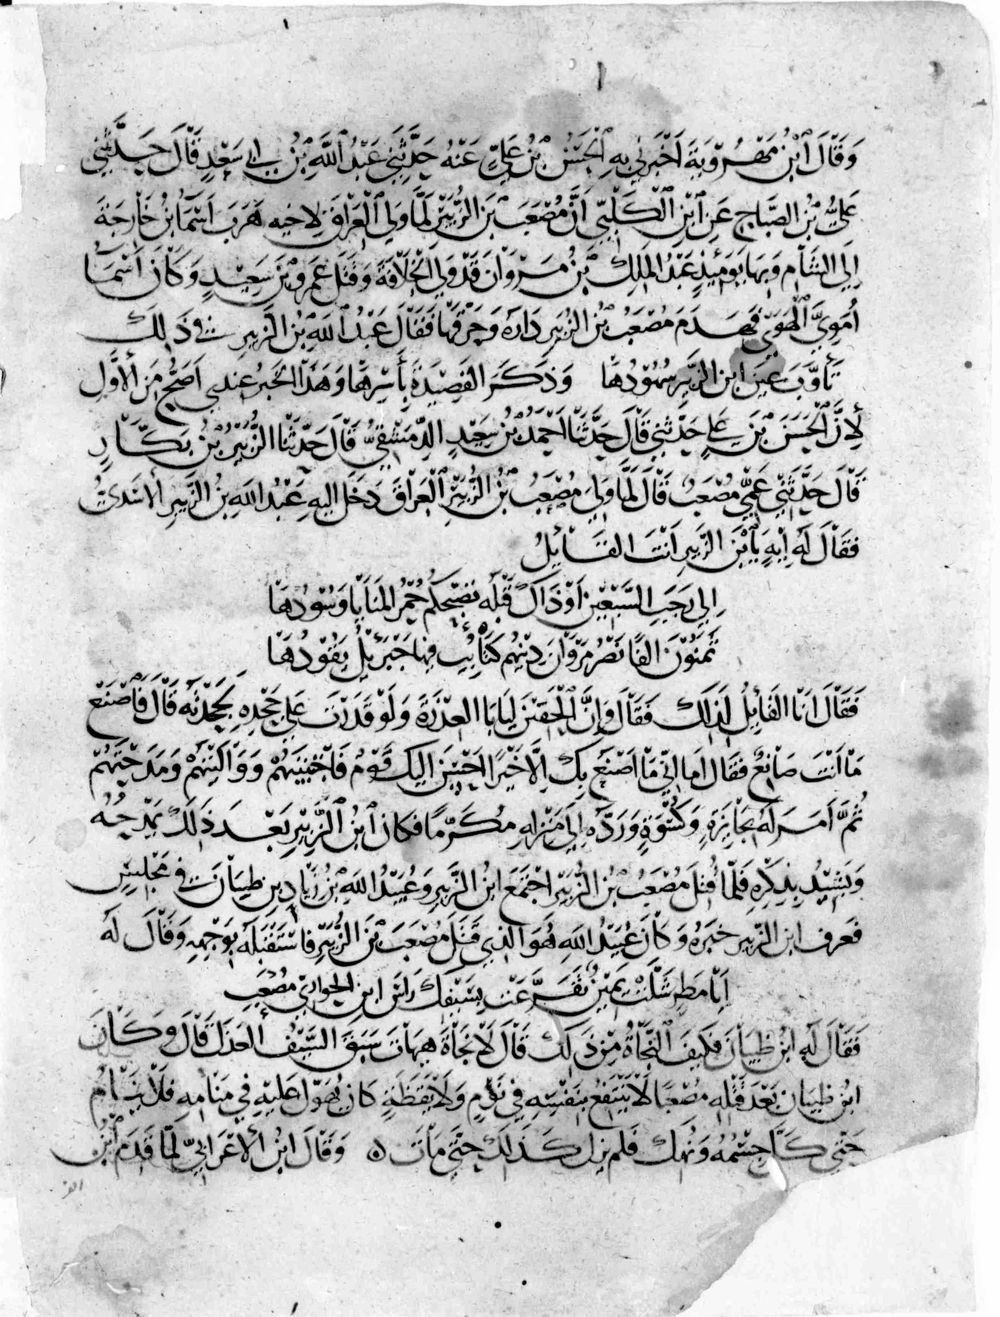 وَقَالَ ابْنُ مَهْرُوَيَةَ أَخْبَرَنِي بِهِ الْحَسَنُ بْنُ عَلِيٍّ عَنْهُ حَدَّثَنِي عَبْدُ اللَّهِ بْنُ أَبِي سَعْدٍ قَالَ حَدَّثَنِي
عَلِيُّ بْنُ الصَّبَّاحِ عَنِ ابْنِ الْكَلْبِيِّ أَنَّ مُصْعَبَ بْنَ الزُّبَيْرِ لَمَّا وَلِيَ الْعِرَاقَ لِأَخِيهِ هَرَبَ أَسْمَا بْنُ خَارِجَةَ
إِلَى الشَّأْمِ وَبِهَا يَوْمَئِذٍ عَبْدُ الْمَلِكِ بْنُ مَرْوَانَ قَدْ وَلِيَ الْخِلَافَةَ وَقَتَلَ عَمْرَو بْنَ سَعِيدٍ وَكَانَ أَسْمَا
أُمَوِيَّ الْهَوَى فَهَدَمَ مُصْعَبُ بْنُ الزُّبَيْرِ دَارَهُ وَحَرَّقَهَا فَقَالَ عَبْدُ اللَّهِ بْنُ الزَّبِيرِ فِي ذَلِكَ
تَأَوَّبَ عَيْنَ ابْنِ الزَّبِيرِ سُهُودُهَا وَذَكَرَ الْقَصِيدَةَ بِأَسْرِهَا وَهَذَا الْخَبَرُ عِنْدِي أَصَحُّ مِنَ الْأَوَّلِ
لِأَنَّ الْحَسَنَ بْنَ عَلِيٍّ حَدَّثَنِي قَالَ حَدَّثَنَا أَحْمَدُ بْنُ سَعِيدٍ الدِّمَشْقِيُّ قَالَ حَدَّثَنَا الزُّبَيْرُ بْنُ بَكَّارٍ
قَالَ حَدَّثَنِي عَمِّي مُصْعَبُ قَالَ لَمَّا وَلِيَ مُصْعَبُ بْنُ الزُّبَيْرِ الْعِرَاقَ دَخَلَ إِلَيْهِ عَبْدُ اللَّهِ بْنُ الزَّبِيرِ الْأَسَدِيُّ
فَقَالَ لَهُ إِيهٍ يَا بْنَ الزَّبِيرِ أَنْتَ الْقَائِلُ
إِلَى رَجَبِ السَّبْعِينَ أَوْ ذَاكَ قَبْلَهُ تُصَبِّحُكُمْ حُمْرُ الْمَنَايَا وَسُودُهَا
ثَمَنُونَ أَلْفًا نَصْرُ مَرْوَانَ دِينُهُمْ كَتَائِبُ فِيهَا جَبْرَئِيلُ يَقُودُهَا
فَقَالَ أَنَا الْقَائِلُ لِذَلِكَ فَقَالَ وَإِنَّ الْحَقِينَ لَيَأْبَا الْعِذْرَةَ وَلَوْ قَدَرْتُ عَلَى جَحْدِهِ لَجَحَدْتُهُ قَالَ فَاصْنَعْ
مَا أَنْتَ صَانِعٌ فَقَالَ أَمَا إِنِّي مَا أَصْنَعُ بِكَ إِلَّا خَيْرًا أَحْسَنَ إِلَيْكَ قَوْمٌ فَأَحْبَبْتَهُمْ وَوَالَيْتَهُمْ وَمَدَحْتَهُمْ
ثُمَّ أَمَرَ لَهُ بِجَائِزَةٍ وَكُسْوَةٍ وَرَدَّهُ إِلَى مَنْزِلِهِ مُكَرَّمًا فَكَانَ ابْنُ الزَّبِيرِ بَعْدَ ذَلِكَ يَمْدَحُهُ
وَيُشِيدُ بِذِكْرِهِ فَلَمَّا قُتِلَ مُصْعَبُ بْنُ الزُّبَيْرِ اجْتَمَعَ ابْنُ الزَّبِيرِ وَعُبَيْدُ اللَّهِ بْنُ زِيَادِ بْنِ ظَبْيَانَ فِي مَجْلِسٍ
فَعَرَفَ ابْنُ الزَّبِيرِ خَبَرَهُ وَكَانَ عُبَيْدُ اللَّهِ هُوَ الَّذِي قَتَلَ مُصْعَبَ بْنَ الزُّبَيْرِ فَاسْتَقْبَلَهُ بِوَجْهِهِ وَقَالَ لَهُ
أَبَا مَطَرٍ شَلَّتْ يَمِينٌ تَفَرَّعَتْ بِسَيْفِكَ رَأْسَ ابْنِ الْحَوَارِيِّ مُصْعَبِ
فَقَالَ لَهُ ابْنُ ظَبْيَانَ فَكَيْفَ النَّجَاةُ مِنْ ذَلِكَ قَالَ لَا نَجَاةَ هَيْهَاتَ سَبَقَ السَّيْفُ الْعَذَلَ قَالَ وَكَانَ
ابْنُ ظَبْيَانَ بَعْدَ قَتْلِهِ مُصْعَبًا لَا يَنْتَفِعُ بِنَفْسِهِ فِي نَوْمٍ وَلَا يَقَظَةٍ كَانَ يُهَوَّلُ عَلَيْهِ فِي مَنَامِهِ فَلَا يَنَامُ
حَتَّى كَلَّ جِسْمُهُ وَنُهِكَ فَلَمْ يَزَلْ كَذَلِكَ حَتَّى مَاتَ ۝ وَقَالَ ابْنُ الْأَعْرَابِيِّ لَمَّا قَدِمَ ابْنُ